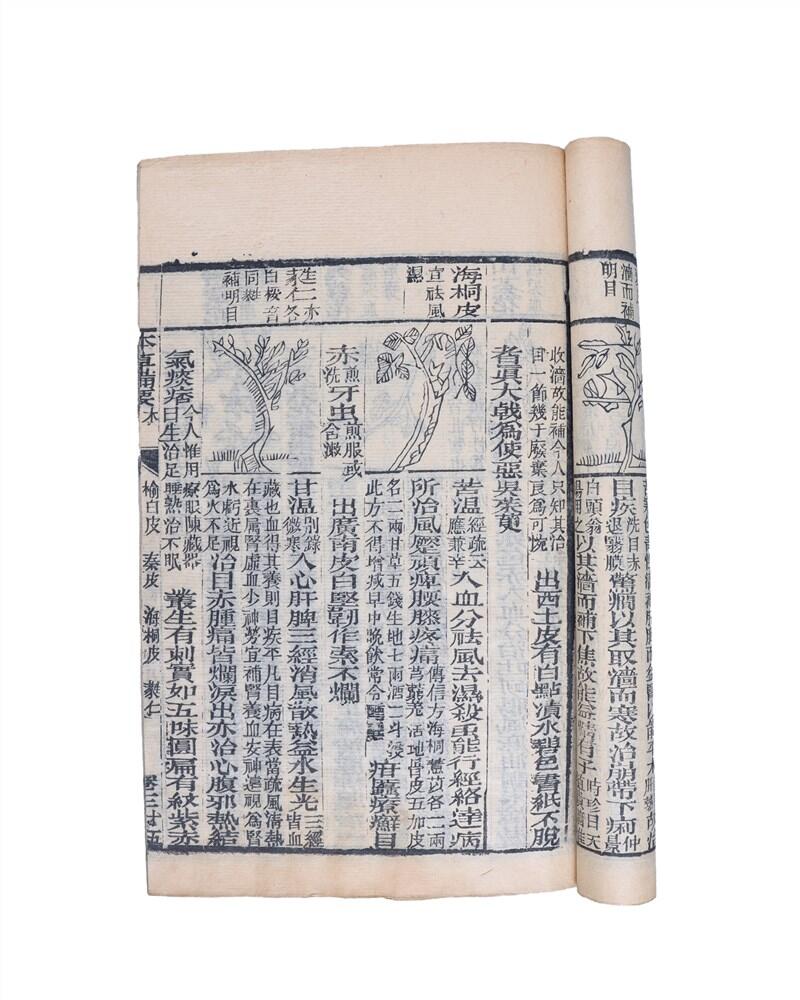 明目
濇而補
目疾洗目赤退翳膜驚癇以其取濇而寒故治崩帶下痢仲景
白頭翁湯用之以其濇而補下焦故能益精有子時珍曰天
收濇故能補今人只知其治
目一節幾于廢棄良爲可惋
出西土皮有白點漬水碧色書紙不脫
者眞大戟爲使惡吳茱萸
海桐皮
宣祛風
濕
苦溫經疏云應兼辛入血分祛風去濕殺蟲能行經絡達病
所治風蹷頑痺腰膝疼痛傳信方海桐薏苡各二兩
牛膝芎藭羌活地骨皮五加皮
各一兩甘草五錢生地七兩酒二斗浸
此方不得增減早中晚飲常令醺醺
疳䘌瘡癬目
赤煎洗牙虫煎服或含漱
出廣南皮白堅韌作索不爛
生二亦
蕤仁各
白桵音
同蕤
補明目
甘溫別錄微寒入心肝脾三經消風散熱益水生光三經皆血
藏也血得其養則目疾平凡目病在表當疏風清熱
在裏屬腎虛血少神勞宜補腎養血安神遠視爲腎
水虧近視爲火不足
治目赤腫痛眥爛淚出亦治心腹邪熱結
氣痰痞今人惟用療眼陳藏器曰生治足睡熟治不眠
叢生有刺實如五味圓扁有紋紫赤
本草備要 木
榆白皮 秦皮 海桐皮 蕤仁
卷三 廿五